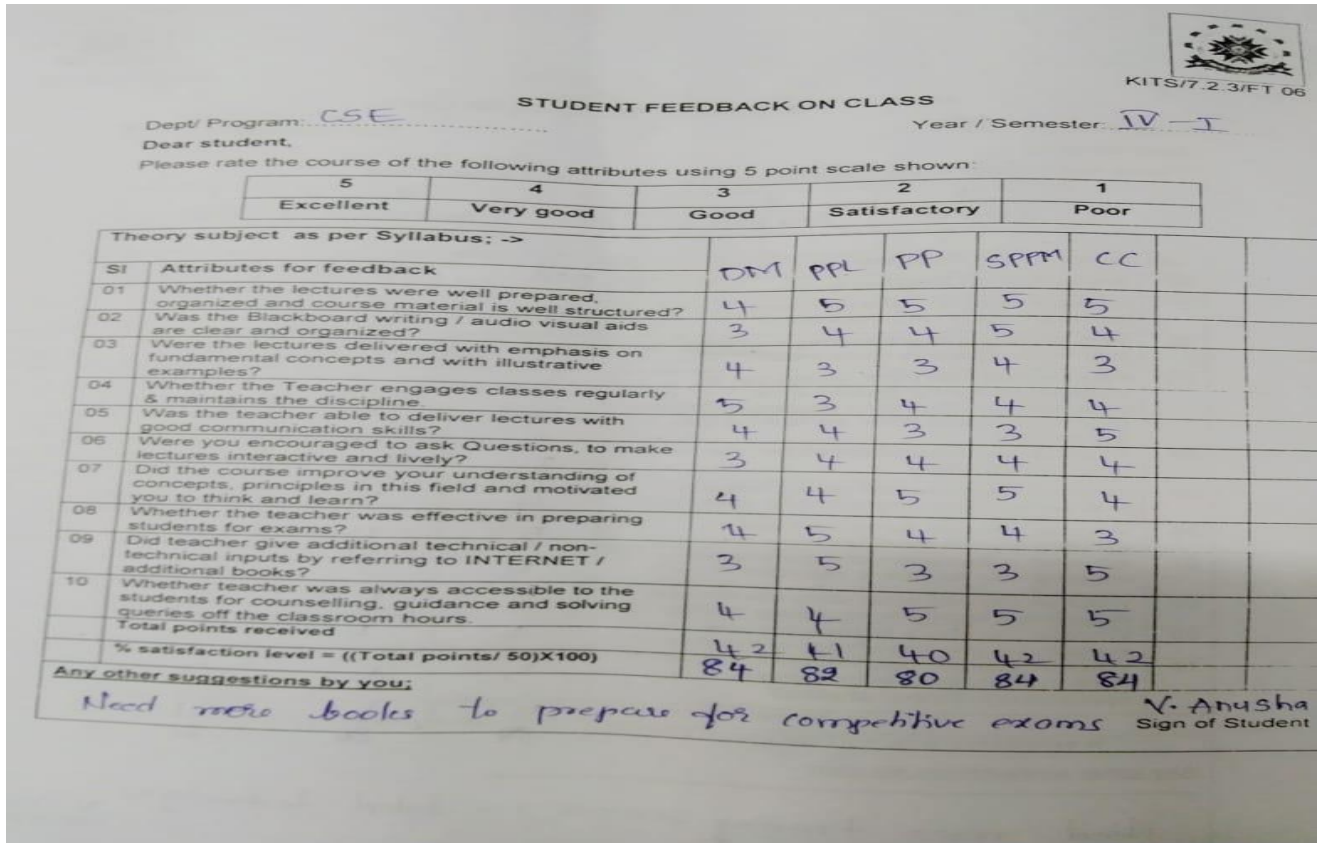 KITS/7.2.3/FT 06
STUDENT FEEDBACK ON CLASS
Dept/ Program: CSE Year / Semester: IV - I
Dear student,
Please rate the course of the following attributes using 5 point scale shown:
5 4 3 2 1
Excellent Very good Good Satisfactory Poor
Theory subject as per Syllabus; ->
SI Attributes for feedback DM PPL PP SPPM CC
01 Whether the lectures were well prepared,
organized and course material is well structured? 4 5 5 5 5
02 Was the Blackboard writing / audio visual aids
are clear and organized? 3 4 4 5 4
03 Were the lectures delivered with emphasis on
fundamental concepts and with illustrative
examples? 4 3 3 4 3
04 Whether the Teacher engages classes regularly
& maintains the discipline. 5 3 4 4 4
05 Was the teacher able to deliver lectures with
good communication skills? 4 4 3 3 5
06 Were you encouraged to ask Questions, to make
lectures interactive and lively? 3 4 4 4 4
07 Did the course improve your understanding of
concepts, principles in this field and motivated
you to think and learn? 4 4 5 5 4
08 Whether the teacher was effective in preparing
students for exams? 4 5 4 4 3
09 Did teacher give additional technical / non-
technical inputs by referring to INTERNET /
additional books? 3 5 3 3 5
10 Whether teacher was always accessible to the
students for counselling, guidance and solving
queries off the classroom hours. 4 4 5 5 5
Total points received 42 41 40 42 42
% satisfaction level = ((Total points/ 50)X100) 84 82 80 84 84
Any other suggestions by you;
Need more books to prepare for competitive exams V. Anusha
Sign of Student